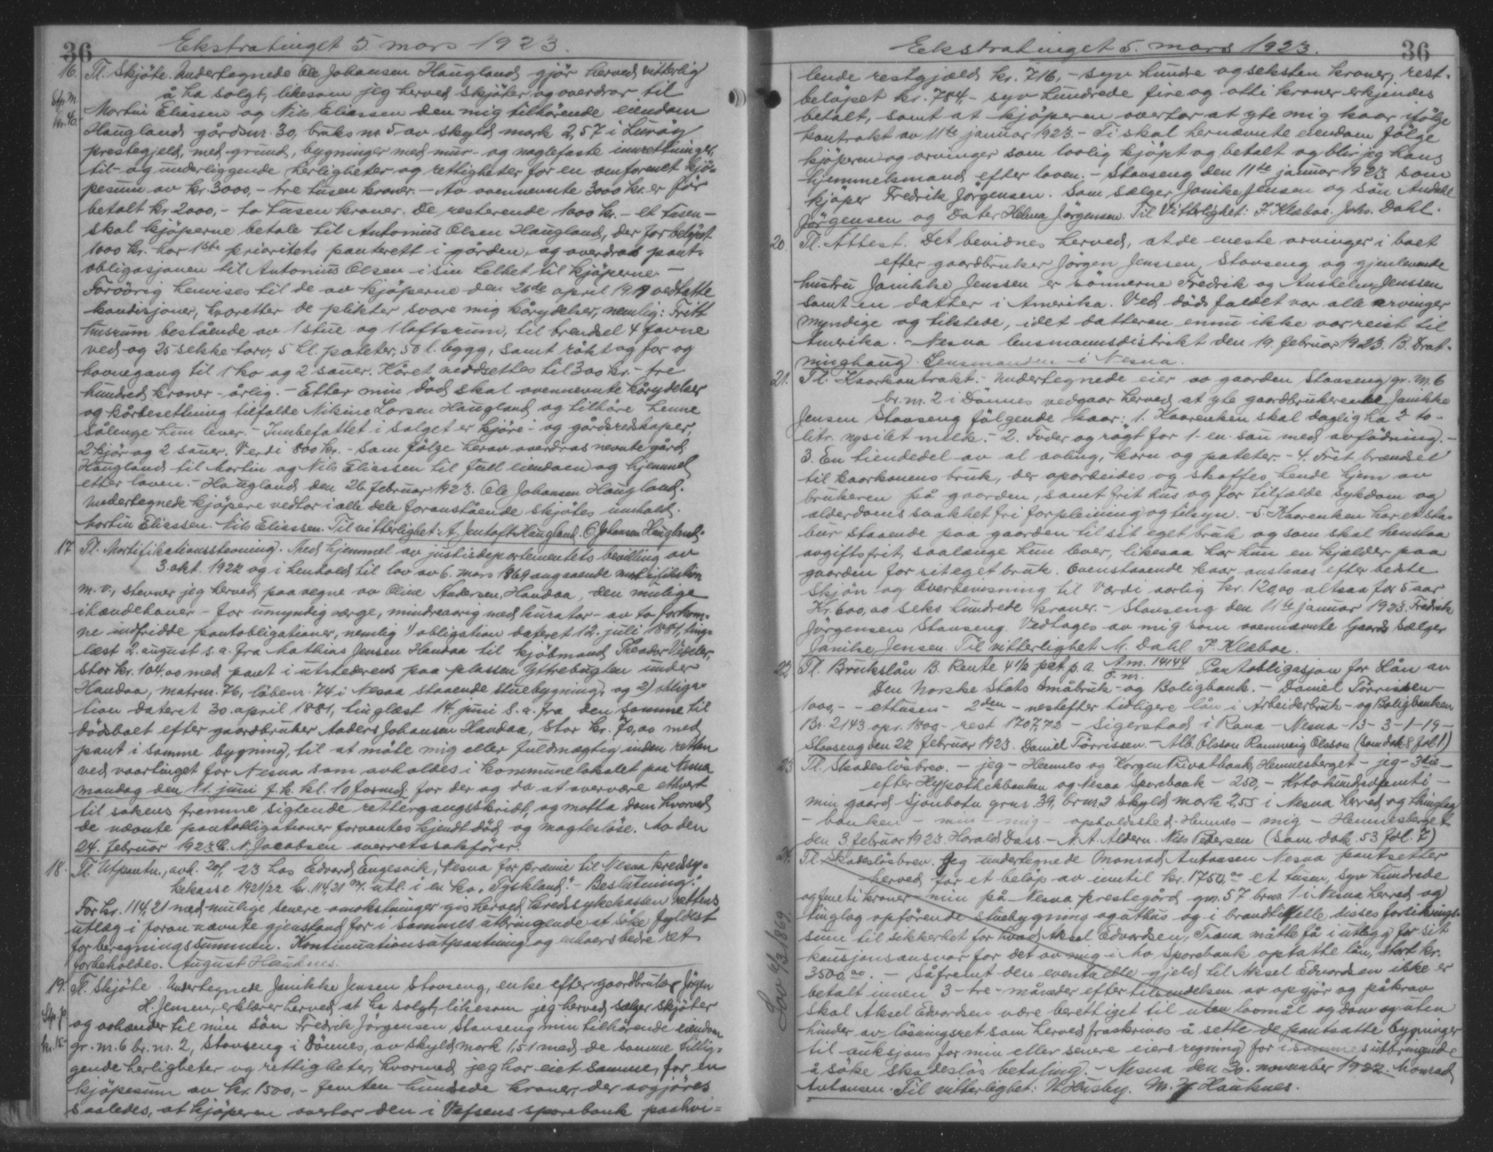 36
Ekstratinget 5 mars 1923.
16. Tl. Skjöte. Undertegnede Ole Johansen Haugland gjör herved vitterlig
å ha solgt, likesom jeg herved skjöter og overdrar til
Martin Eliassen og Nils Eliassen den mig tilhörende eiendom
Haugland gårdsnr. 30, bruks nr 5 av skyld mark 2,57 i Luröy
prestegjeld, med grund, bygninger med mur- og naglefaste innretninger,
til- og underliggende herligheter og rettigheter for en omforenet kjö-
pesum av kr 3000,- tre tusen kroner. - Av ovennevnte 3000 kr. er för
betalt kr 2000,- to tusen kroner. De resterende 1000 kr. - et tusen -
skal kjöperne betale til Antonius Olsen Haugland, der for beløpet
1000 kr. har 1ste prioritets panterett i gården, og overdras pant-
obligasjonen til Antonius Olsen i sin helhet til kjöperne -
Forövrig henvises til de av kjöperne den 26de april 1919 vedtatte
kondisjoner, hvoretter de plikter svare mig kårydelser, nemlig: Fritt
husrum bestående av 1 stue og 1 loftsrum, til brendsel 4 favne
ved og 25 sekke torv, 5 hl. poteter, 50 l. bygg, samt røkt og for og
havnegang til 1 ko og 2 sauer. Kåret verdsettes til 300 kr. - tre
hundred kroner - årlig. - Etter min död skal ovennevnte kårydelser
og kårbesettning tilfalde Nikine Larsen Haugland og tilhöre henne
sålenge hun lever. - Innbefattet i salget er kjöre- og gårdsredskaper,
2 kjör og 2 sauer. Verdi 800 kr. - Som fölge herav overdras nevnte gård
Haugland til Martin og Nils Eliassen til full eiendom og hjemmel
etter loven. - Haugland den 26 februar 1923. Ole Johansen Haugland.
Undertegnede kjöpere vedtar i alle dele foranstående skjötes innhold.
Martin Eliassen Nils Eliassen. Til vitterlighet: A. Jentoft Haugland. O. Johansen Haugland.
17 Tl. Mortifikationsstevning. Med hjemmel av justisdepartementets bevilling av
3. okt. 1922 og i henhold til lov av 6. mars 1869 angaaende mortifikation
m. v., stevner jeg herved paa vegne av Oline Andersen, Handaa, den mulige
ihændehaver - for umyndig værge, mindreaarig med kurator - av to forkom-
ne indfridde pantobligationer, nemlig 1) obligation dateret 12. juli 1881, ting-
læst 2. august s. a. fra Mathias Jensen Handaa til kjöbmand Theodor
stor kr. 104.00 med pant i utstederens paa plassen Ytrebugten under
Handaa, matrnr. 76, löbenr. 74 i Nesna staaende stuebygning, og 2) obliga-
tion dateret 30. april 1881, tinglæst 14. juni s. a. fra den samme til
dödsboet efter gaardbruker Anders Johansen Handaa, stor kr. 70,00 med
pant i samme bygning, til at möte mig eller fuldmægtig inden retten
ved vaartinget for Nesna som avholdes i kommunelokalet paa Nesna
mandag den 11. juni f. k. kl. 10 formd. for der og da at overvære ethvert
til sakens fremme sigtende rettergangsskridt, og motta dom hvorved
de nævnte pantobligationer forventes kjendt död og magteslöse. Mo den
24. februar 1923 C. N. Jacobsen overretssakförer.
18. Tl. Utpantn., avh. 20/1 23 hos Edvard Engesvik, Nesna for præmie til Nesna kredssy-
kekasse 1921/22 kr. 114,21 m. utl. i en ko. "Tyskland". - Beslutning:
For kr. 114,21 med mulige senere omkostninger gis herved kredssykekassen rettens
utlæg i foran nævnte gjenstand for i sammes utbringende at söke fyldest
for beregningssummen. Kontinuationsutpantning og enhvers bedre ret
forbeholdes. August Hauknes.
19. Tl. Skjöte. Undertegnede Janikke Jensen Stavseng, enke efter gaardbruker Jörgen
H. Jensen, erklærer herved at ha solgt, likesom jeg herved sælger skjöter
og avhænder til min sön Fredrik Jörgensen Stavseng min tilhörende eiendom
gr. nr. 6 br. nr. 2, Stavseng i Dönnes, av skyld mark 1,51 med de samme tillig-
gende herligheter og rettigheter, hvormed jeg har eiet samme, for en
kjöpesum av kr. 1500, femten hundrede kroner, der avgjöres
saaledes, at kjöperen overtar den i Vefsens sparebank paahvi-
36
Ekstratinget 5. mars 1923.
lende restgjæld kr. 716,- syv hundre og seksten kroner, rest-
belöpet kr. 784,- syv hundrede fire og otti kroner erkjendes
betalt, samt at kjöperen overtar at yte mig kaar ifölge
kontrakt av 11te januar 1923. - Ti skal hernævnte eiendom fölge
kjöperen og arvinger som lovlig kjöpt og betalt og blir jeg hans
hjemmelsmand efter loven. - Stavseng den 11te januar 1923 som
kjöper Fredrik Jörgensen. Som sælger Janikke Jensen og sön
Jörgensen og Dater Helena Jörgensen. Til Vitterlighet: F. Klæboe. Johs. Dahl.
20. Tl. Attest. Det bevidnes herved, at de eneste arvinger i boet
efter gaardbruker Jörgen Jenssen, Stavseng og gjenlevende
hustru Janikke Jenssen er sönnerne Fredrik og Anshelm Jenssen
samt en datter i Amerika. Ved dödsfaldet var alle arvinger
myndige og tilstede, idet datteren ennu ikke var reist til
Amerika. - Nesna lensmannsdistrikt den 19. februar 1923. B. Drot-
ninghaug Lensmanden i Nesna.
21. Tl. Kaarkontrakt. - Undertegnede eier av gaarden Stavseng gr. nr. 6
br. nr. 2 i Dönnes vedgaar herved at yte gaardbrukerenke Janikke
Jensen Stavseng fölgende kaar: 1. Kaarenken skal daglig ha 2 to-
litr. nysilt melk. - 2. Foder og rögt for 1 - en sau med avfödning. -
3. En tiendedel av al avling, korn og poteter. - 4. Frit brændsel
til kaarkonens bruk, der oparbeides og skaffes hende hjem av
brukeren paa gaarden, samt frit hus og for tilfælde sykdom og
alderdomssvakhet fri forpleining og tilsyn. - 5. Kaarenken har et sta-
bur staaende paa gaarden til sit eget bruk og som skal henstaa
avgiftsfrit, saalænge hun lever, likesaa har hun en kjælder paa
gaarden for sit eget bruk. Ovenstaaende kaar anslaaes efter bedste
skjön og overbevisning til værdi aarlig kr. 120,00 altsaa for 5 aar
Kr. 600,00 seks hundrede kroner. - Stavseng den 11te januar 1923. Fredrik
Jörgensen Stavseng. Vedtages av mig som ovennævnte Gaards sælger
Janikke Jensen. Til vitterlighet M. Dahl F. Klæboe.
22 Tl. Brukslån B. Rente 4½ pct. p. a. Am. 14144 Pantobligasjon for Lån av
Den Norske Stats Småbruk- og Boligbank. - Daniel Tørrissen -
1000,- - ettusen - 2den - nestefter tidligere lån i Arbeiderbruk- og Boligbanken
Br. 2143 opr. 1800,- rest 1707,72 - Sigerstad i Rana - Nesna - 13 - 3 - 1 - 19 -
Stavseng den 22 februar 1923. Daniel Tørrissen. - Alb. Olsson Rannveig Olsson (som dok. 8 fol. 1)
23 Tl. Skadeslösbrev. - jeg - Hemnes og Korgen Privatbank, Hemnesberget - jeg - 3die -
efter Hypothekbanken og Nesna Sparebank - 250,- - tohundredfemti -
min gaard Sjönbotn grnr. 39, brnr. 3 skyld mark 2,55 i Nesna herred og thinglag
- banken - min - mig - opholdssted: Hemnes - mig - Hemnesberget
den 3 februar 1923 Harald Dass. - A. A. Aldern. Nils Pedersen (som dok. 53 fol. 7)
24. Tl. Skadeslösbrev. Jeg undertegnede Monrad Antonsen Nesna pantsetter
herved for et belöp av inntil kr. 1750.00 et tusen, syv hundrede
og femti kroner min på Nesna prestegård gnr. 57 brnr. 1 i Nesna herred og
tinglag opförende stuebygning og uthus og i brandtilfelle disses forsikrings-
sum til sikkerhet for hvad Aksel Edvardsen, Træna måtte få i utlegg for sit
kausjonsansvar for det av mig i Mo Sparebank optatte lån, stort kr.
3500.00. - Såfremt den eventuelle gjeld til Aksel Edvardsen ikke er
betalt innen 3 - tre - måneder efter tilsendelsen av opgjör og påkrav
skal Aksel Edvardsen være berettiget til uten lovmål og dom og uten
hinder av lösningsret som herved fraskrives å sette de pantsatte bygninger
til auksjons for min eller senere eiers regning for i sammes utbringende
å söke skadeslös betaling. - Nesna den 20. november 1922. Monrad
Antonsen. Til vitterlighet: W. Husby. M. H. Hauknes.
Lov 6/3 1869.